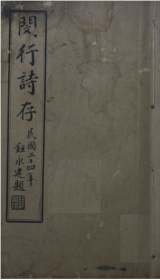 閔行詩存
民國二十四年
鈕永建題